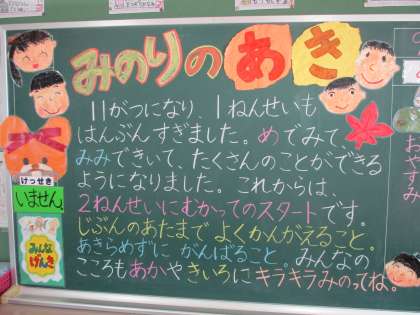 みのりの あき
11がつになり、1ねんせいも
はんぶんすぎました。めでみて、
みみできいて、たくさんのことができる
ようになりました。これからは、
2ねんせいにむかってのスタートです。
じぶんのあたまで よくかんがえること。
あきらめずに がんばること。みんなの
こころもあかやきいろにキラキラみのってね。
けっせき
いません。
みんな
げんき